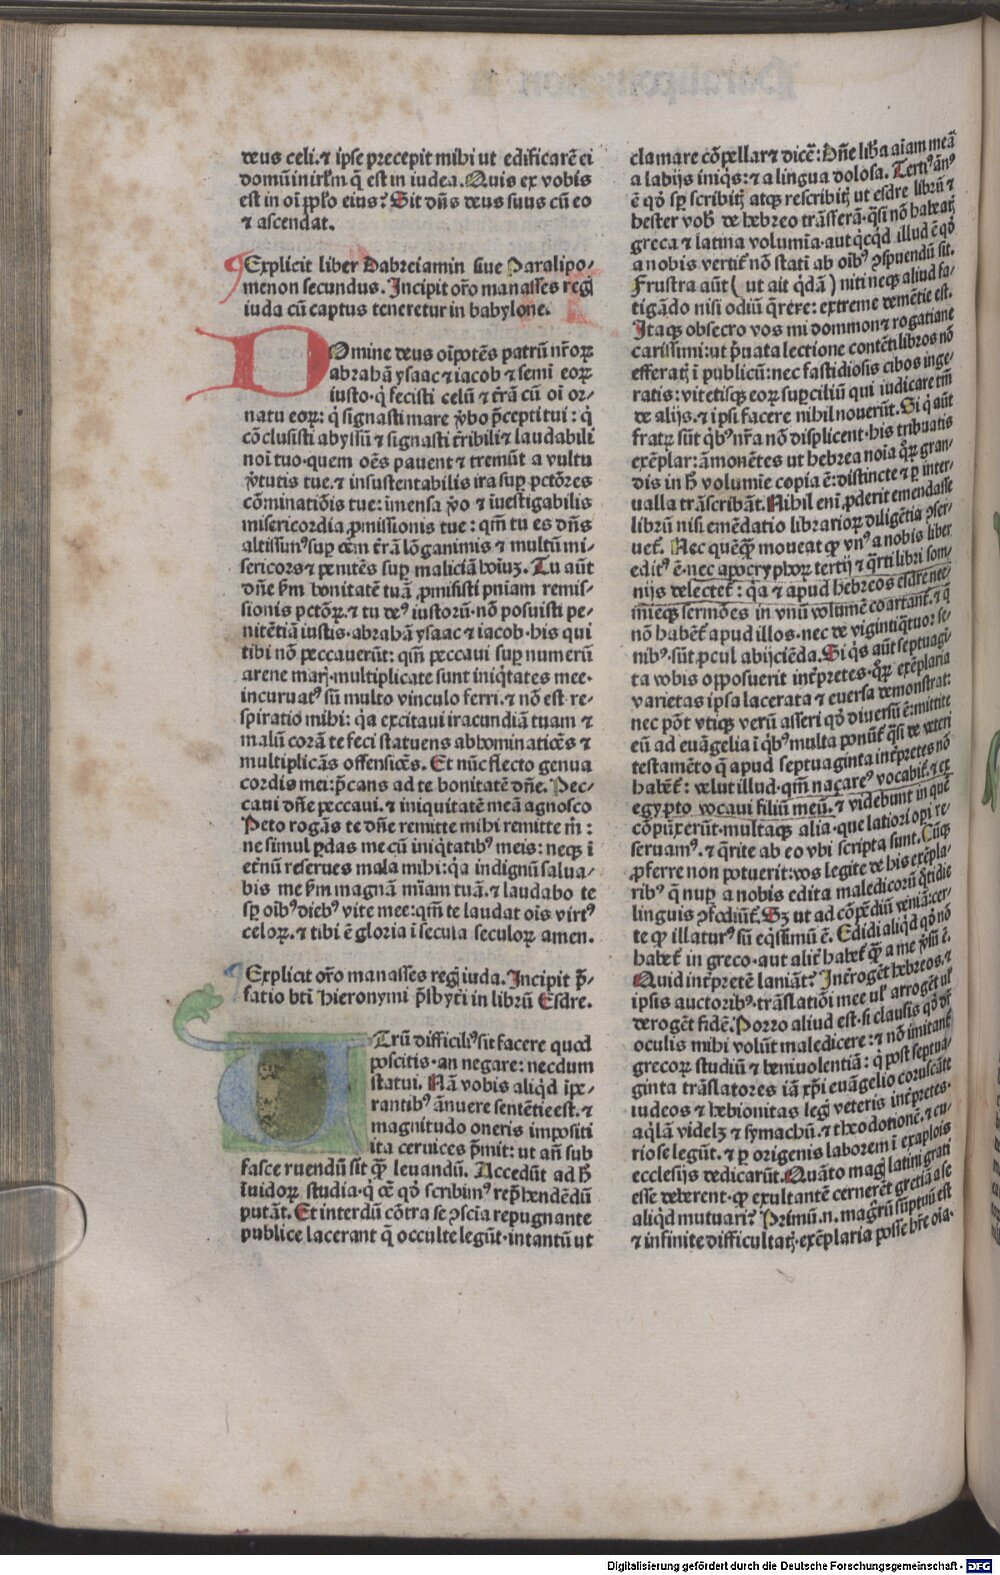 deus celi. ⁊ ipse precepit mihi ut edificarē ei
domū in irl̄m q̄ est in iudea. Quis ex vobis
est in oī pp̄lo eius? Sit dn̄s deus suus cū eo
⁊ ascendat.
Explicit liber Dabreiamin siue Paralipo-
menon secundus. Incipit orō manasses regꝭ
iuda cū captus teneretur in babylone.
DOmine deus oīpotēs patrū nr̄oꝝ
abrahā ysaac ⁊ iacob ⁊ semī eoꝝ
iusto. q̇ fecisti celū ⁊ t̄rā cū oī or-
natu eoꝝ: q̇ signasti mare ꝟbo p̄cepti tui: q̇
cōclusisti abyssū ⁊ signasti t̄ribili ⁊ laudabili
noī tuo. quem oēs pauent ⁊ tremūt a vultu
ꝟtutis tue. ⁊ insustentabilis ira suꝑ pctōres
cōminatiōis tue: īmensa ꝟo ⁊ īuestigabilis
misericordia ꝓmissionis tue: qm̄ tu es dn̄s
altissimꝰ suꝑ oēm t̄rā lōganimis ⁊ multū mi-
sericors ⁊ penitēs suꝑ maliciā hoīuꝫ. Tu aūt
dn̄e ẜm bonitatē tuā ꝓmisisti pn̄iam remis-
sionis pctōꝝ. ⁊ tu deꝰ iustorū. nō posuisti pe-
nitētiā iustis. abrahā ysaac ⁊ iacob. his qui
tibi nō peccauerūt: qm̄ peccaui suꝑ numerū
arene marꝭ. multiplicate sunt iniq̇tates mee.
incuruatꝰ sū multo vinculo ferri. ⁊ nō est re-
spiratio mihi: q̇a excitaui iracundiā tuam ⁊
malū corā te feci statuens abhominatiōes ⁊
multiplicās offensiōes. Et nūc flecto genua
cordis mei: p̄cans ad te bonitatē dn̄e. Pec-
caui dn̄e peccaui. ⁊ iniquitatē meā agnosco
Peto rogās te dn̄e remitte mihi remitte m̄:
ne simul ꝑdas me cū iniq̇tatibꝰ meis: neqꝫ ī
et̄nū reserues mala mihi: q̇a indignū salua-
bis me ẜm magnā mīam tuā. ⁊ laudabo te
sꝑ oībꝰ diebꝰ vite mee: qm̄ te laudat oīs virtꝰ
celoꝝ. ⁊ tibi ē gloria ī secula seculoꝝ amen.
Explicit orō manasses regꝭ iuda. Incipit p̄-
fatio bt̄i Hieronymi p̄sbyt̄i in librū Esdre.
UTrū difficilꝰ sit facere quod
poscitis. an negare: necdum
statui. Nā vobis aliq̇d īpe-
rantibꝰ ānuere sentētie est. ⁊
magnitudo oneris impositi
ita ceruices p̄mit: ut añ sub
fasce ruendū sit q̄ꝫ leuandū. Accedūt ad h̄
īuidoꝝ studia. q̇ oē qd̓ scribimꝰ rep̄hendēdū
putāt. Et interdū cōtra se ꝯscīa repugnante
publice lacerant q̄ occulte legūt. intantū ut
clamare cōpellar ⁊ dicē: Dn̄e lib̄a aīam meā
a labijs iniqꝭs: ⁊ a lingua dolosa. Tertiꝰ ānꝰ
ē qd̓ sꝑ scribitꝭ atqꝫ rescribitꝭ ut esdre librū ⁊
hester vob̄ de hebreo trāsferā. q̄si nō habeatꝭ
greca ⁊ latina volumīa. aut q̇cq̇d illud ē qd̓
a nobis vertit̄ nō statī ab oībꝰ ꝯspuendū sit.
Frustra aūt (ut ait q̇dā) niti neqꝫ aliud fa-
tigādo nisi odiū q̄rere: extreme demētie est.
Itaqꝫ obsecro vos mi dommon ⁊ rogatiane
carissimi: ut p̄uata lectione contēti libros nō
efferatꝭ ī publicū: nec fastidiosis cibos inge-
ratis: vitetisqꝫ eoꝝ suꝑciliū qui iudicare tm̄
de alijs. ⁊ ipsi facere nihil nouerūt. Si q̇ aūt
fratꝝ sūt q̇bꝰ nr̄a nō displicent. his tribuatis
exēplar: āmonētes ut hebrea noīa q̄ꝝ gran-
dis in h̄ volumīe copia ē: distincte ⁊ ꝑ inter-
ualla trāscribāt. Nihil enī ꝓderit emendasse
librū nisi emēdatio librarioꝝ diligētia ꝯser-
uet̄. Nec quēq̄ꝫ moueat ꝙ vnꝰ a nobis liber
editꝰ ē. nec apocryphoꝝ tertij ⁊ q̄rti libri som-
nijs delectet̄: q̇a ⁊ apud hebreos esdre nee-
mieqꝫ sermōes in vnū volumē coartant̄. ⁊ q̄
nō habēt̄ apud illos. nec de vigintiq̄tuor se-
nibꝰ. sūt ꝓcul abijciēda. Si q̇s aūt septuagī-
ta vobis opposuerit int̄pretes. q̄ꝝ exēplaria
varietas ipsa lacerata ⁊ euersa demonstrat:
nec pōt vtiqꝫ verū asseri qd̓ diuersū ē: mittite
eū ad euāgelia ī q̇bꝰ multa ponūt̄ q̄si de veteri
testamēto q̄ apud septuaginta int̄pretes nō
habēt̄: velut illud. qm̄ naçareꝰ vocabit̄. ⁊ ex
egypto vocaui filiū meū. ⁊ videbunt in quē
cōpūxerūt. multaqꝫ alia. que latiori oꝑi re-
seruamꝰ. ⁊ q̄rite ab eo vbi scripta sunt. Cūqꝫ
ꝓferre non potuerit: vos legite de his exēpla-
ribꝰ q̄ nuꝑ a nobis edita maledicorū q̇tidie
linguis ꝯfodiūt̄. Sꝫ ut ad cōpēdiū veniā: cer-
te ꝙ illaturꝰ sū eq̇ssimū ē. Edidi aliq̇d qd̓ nō
habet̄ in greco. aut alit̄ habet̄ q̄ꝫ a me ꝟsū ē.
Quid int̄pretē laniāt? Int̄rogēt hebreos. ⁊
ipsis auctoribꝰ. trāslatiōi mee ul̓ arrogēt ul̓
derogēt fidē. Porro aliud est. si clausis qd̓ dr̄
oculis mihi volūt maledicere: ⁊ nō imitant̄
grecoꝝ studiū ⁊ beniuolentiā: q̇ post septua-
ginta trāslatores iā xp̄i euāgelio coruscāte
iudeos ⁊ hebionitas legꝭ veteris int̄pretes.
aq̇lā videlꝫ ⁊ symachū. ⁊ theodotionē. ⁊ cu-
riose legūt. ⁊ ꝑ origenis laborem ī exaplois
ecclesijs dedicarūt. Quāto magꝭ latini grati
esse deberent. ꝙ exultantē cernerēt greciā a se
aliq̇d mutuari? Primū.n. magr̄ū sūptuū est
⁊ infinite difficultatꝭ. exēplaria posse hr̄e oīa.
Digitalisierung gefördert durch die Deutsche Forschungsgemeinschaft - DFG